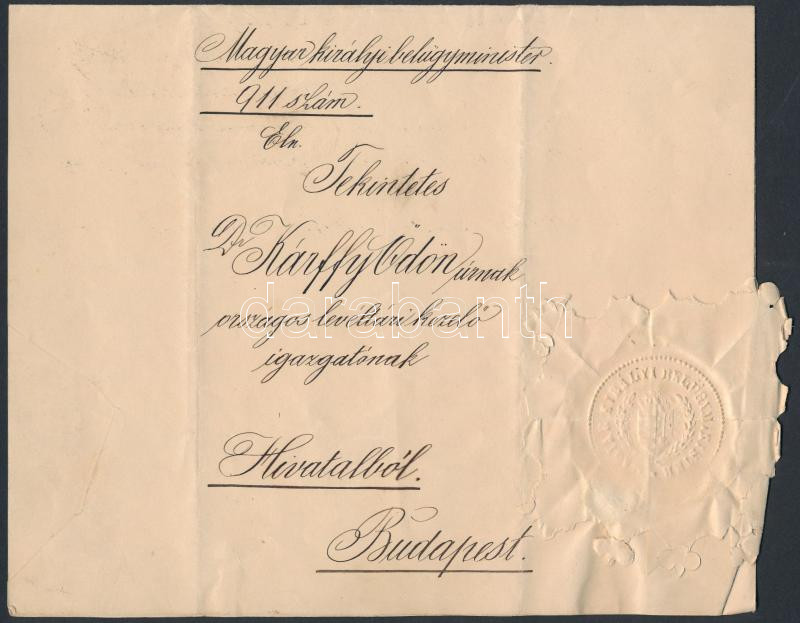 Magyar királyi belügyminister.
911 szám.
Eln.
Tekintetes
Dr Kárffy Ödön úrnak
országos levéltári kezelő
igazgatónak
darabanth
Hivatalból.
Budapest.
KIRÁLYI